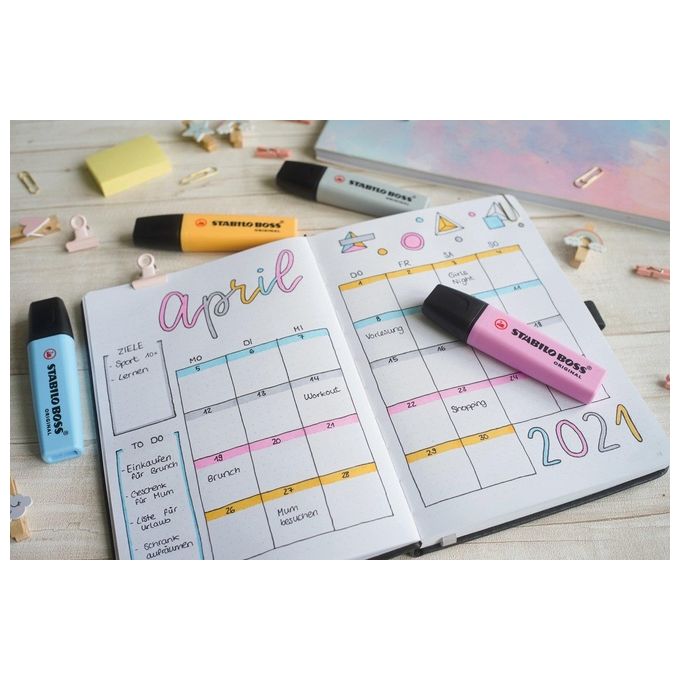 STABILO BOSS
ORIGINAL
STABILO BOSS
STABILO BOSS
ORIGINAL
STABILO BOSS
ORIGINAL
april
ZIELE
- Sport 10x
- Lernen
TO DO
- Einkaufen
für Brunch
- Geschenk
für Mum
- Liste für
Urlaub
- Schrank
aufräumen
MO DI MI
5 6 7
12 13 14
Workout
19 20 21
Brunch
26 27 28
Mum
besuchen
DO FR SA SO
1 2 3 4
Girls
Night
8 11
Vorlesung
15 18
22 23 24
Shopping
29 30
2021